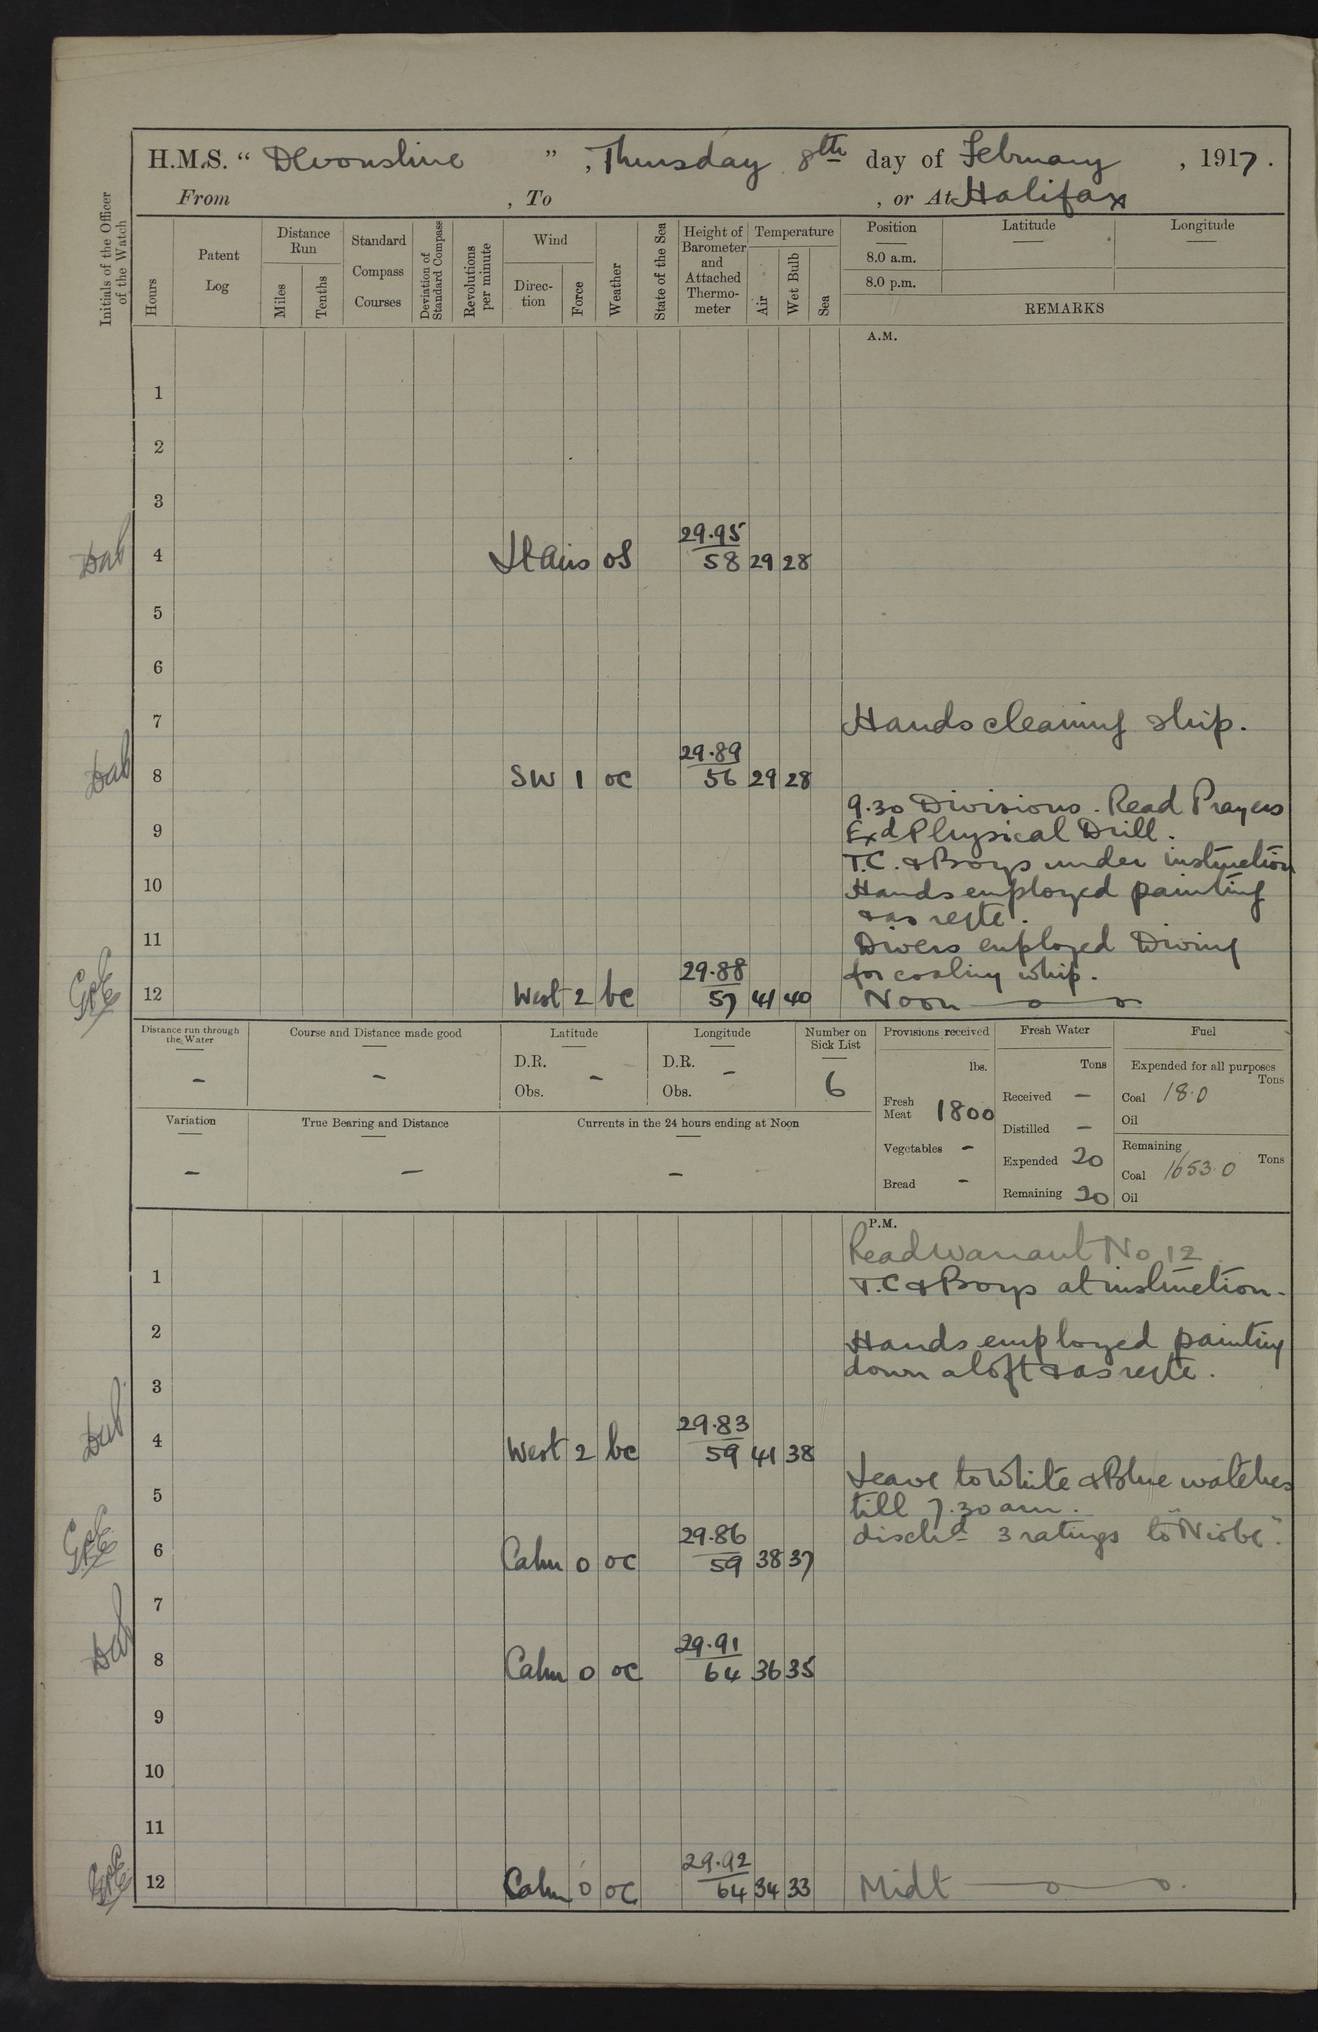 H.M.S. “ Devonshire ” , Thursday 8th day of February , 1917.
From , To , or At Halifax
Initials of the Officer of the Watch
Hours
Patent Log
Distance Run
Miles
Tenths
Standard Compass Courses
Deviation of Standard Compass
Revolutions per minute
Wind
Direction
Force
Weather
State of the Sea
Height of Barometer and Attached Thermometer
Temperature
Air
Wet Bulb
Sea
Position
Latitude
Longitude
8.0 a.m.
8.0 p.m.
REMARKS
A.M.
1
2
3
29.95
4 Lt airs os 58 29 28
5
6
7 Hands cleaning ship.
29.89
8 SW 1 oc 56 29 28
9.30 Divisions. Read Prayers
9 Exd Physical Drill.
T.C. & Boys under instruction
10 Hands employed painting
& as reqte.
11 Divers employed Diving
29.88 for coaling whip.
12 West 2 bc 57 41 40 Noon
Distance run through the Water
-
Course and Distance made good
-
Latitude
D.R.
Obs. -
Longitude
D.R.
Obs. -
Number on Sick List
6
Provisions received
lbs.
Fresh Meat 1800
Vegetables -
Bread -
Fresh Water
Tons
Received -
Distilled -
Expended 20
Remaining 20
Fuel
Expended for all purposes
Tons
Coal 18.0
Oil
Remaining
Tons
Coal 1653.0
Oil
Variation
-
True Bearing and Distance
-
Currents in the 24 hours ending at Noon
-
P.M.
Read warrant No 12
1 T.C & Boys at instruction.
2 Hands employed painting
down aloft & as reqte.
3
29.83
4 West 2 bc 59 41 38
Leave to White & Blue watches
5 till 7.30 am.
29.86 dischd 3 ratings to "Niobe".
6 Calm 0 oc 59 38 37
7
29.91
8 Calm 0 oc 64 36 35
9
10
11
29.92
12 Calm 0 oc 64 34 33 Midt